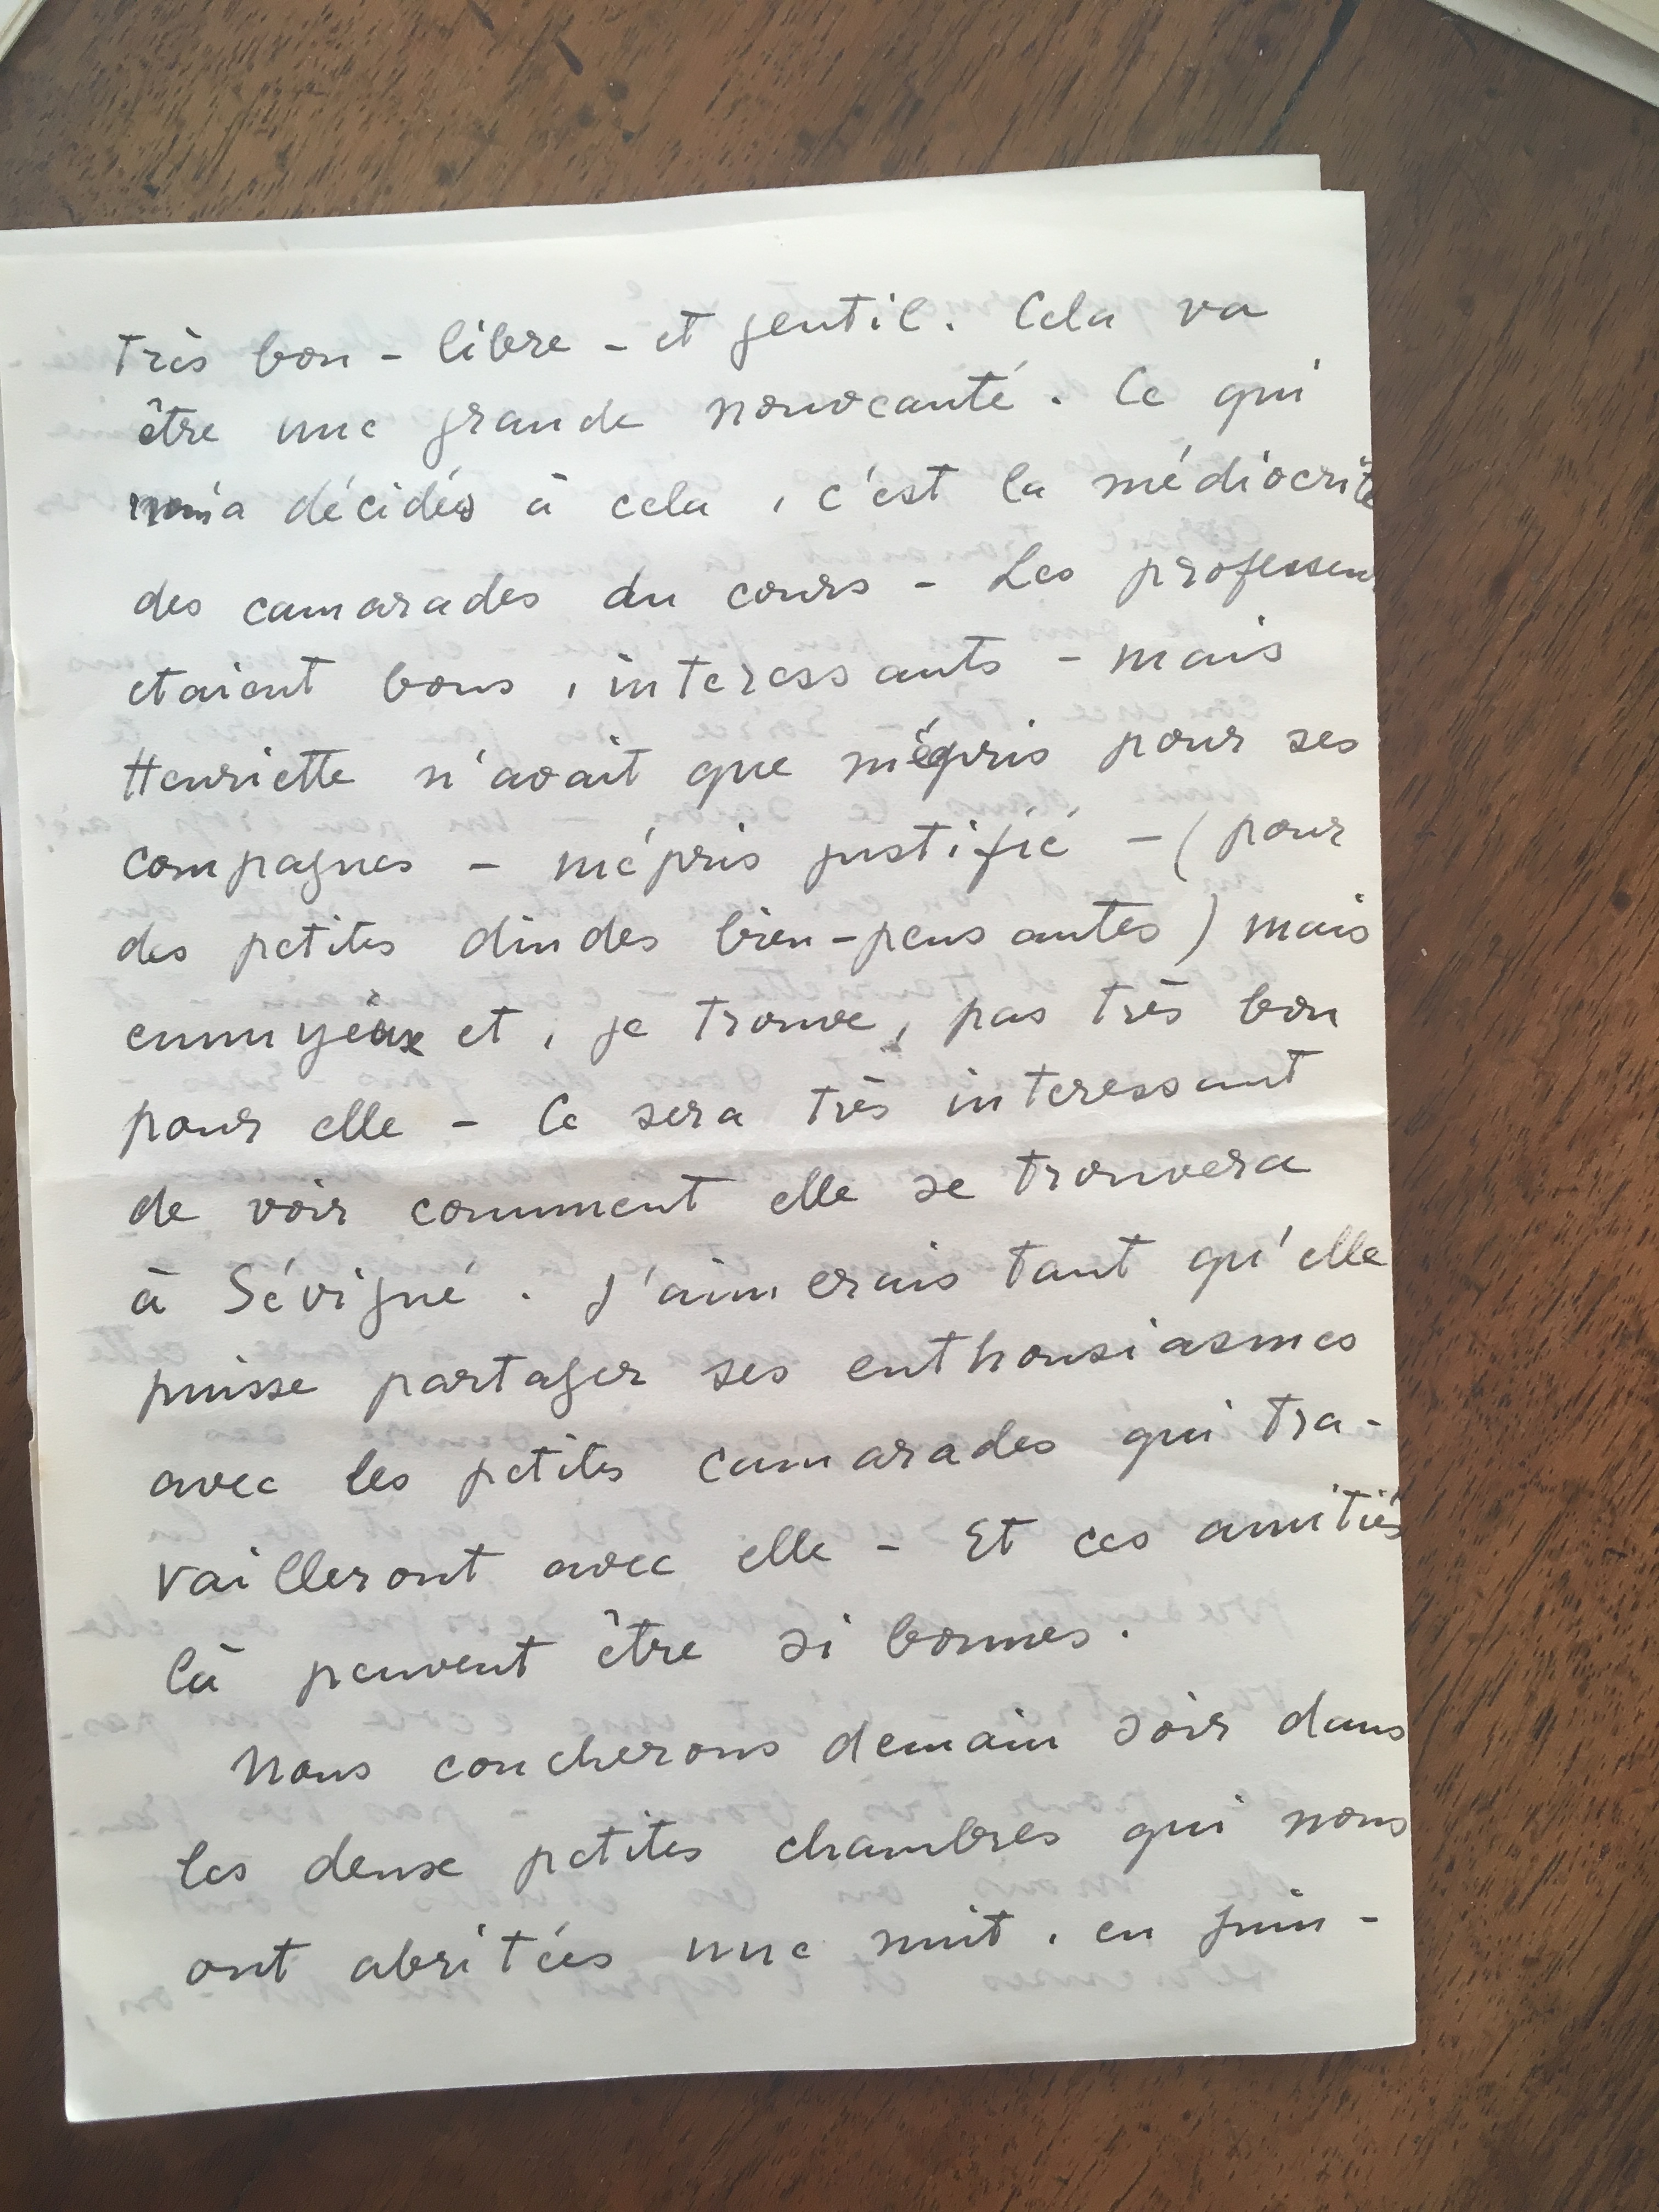 très bon - libre - et gentil. Cela va
être une grande nouveauté. Ce qui
m'a décidés à cela, c'est la médiocrité
des camarades du cours - Les professeurs
etaient bons, interessants - mais
Henriette n'avait que mépris pour ses
compagnes - mépris justifié - (pour
des petites dindes bien-pensantes) mais
ennuyeux et, je trouve, pas très bon
pour elle - Ce sera très interessant
de voir comment elle se trouvera
à Sévigné. J'aimerais tant qu'elle
puisse partager ses enthousiasmes
avec les petites camarades qui tra-
vailleront avec elle - Et ces amitiés
là peuvent être si bonnes.
Nous coucherons demain soir dans
les deux petites chambres qui nous
ont abritées une nuit, en juin -